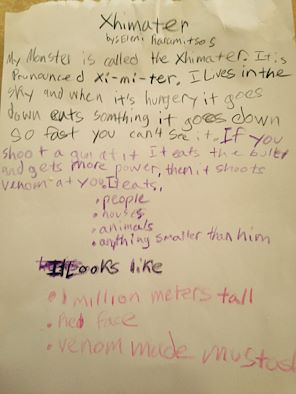 Xhimater
by: Eleni Karamitsos
My Monster is called the Xhimater. It is
Prunounced Xi-mi-ter. I Lives in the
sky and when it's hungery it goes
down eats somthing it goes down
so fast you can't see it. If you
shoot a gun at it It eats the bullet
and gets more power, then it shoots
venom at you. It eats,
• people
• houses
• animals
• anything smaller than him
It Looks like
• 1 million meters tall
• Red face
• venom made mustach